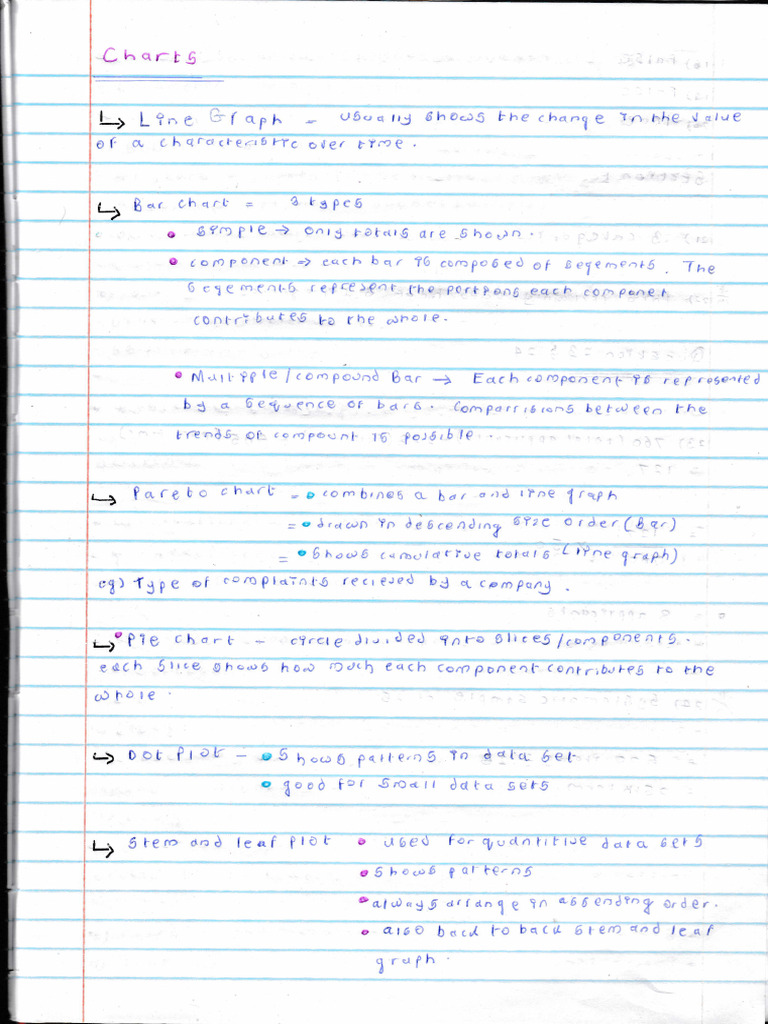 Charts
↳ Line Graph = usually shows the change in the value
of a characteristic over time.
↳ Bar chart = 3 types
• simple → only totals are shown.
• component → each bar is composed of segements. The
segements represent the portions each componet
contributes to the whole.
• Multiple/compound Bar → Each component is represented
by a sequence of bars. Comparrisions between the
trends of compount is possible.
↳ Pareto chart = • combines a bar and line graph
= • drawn in descending size order (Bar)
= • shows cumulative totals (line graph)
eg) Type of complaints recieved by a company.
↳ • Pie chart - circle divided into slices/components.
each slice shows how much each component contributes to the
whole.
↳ Dot Plot - • Shows patterns in data set
• good for small data sets
↳ Stem and leaf plot • used for quantitive data sets
• shows patterns
• always arrange in assending order.
• also back to back stem and leaf
graph.